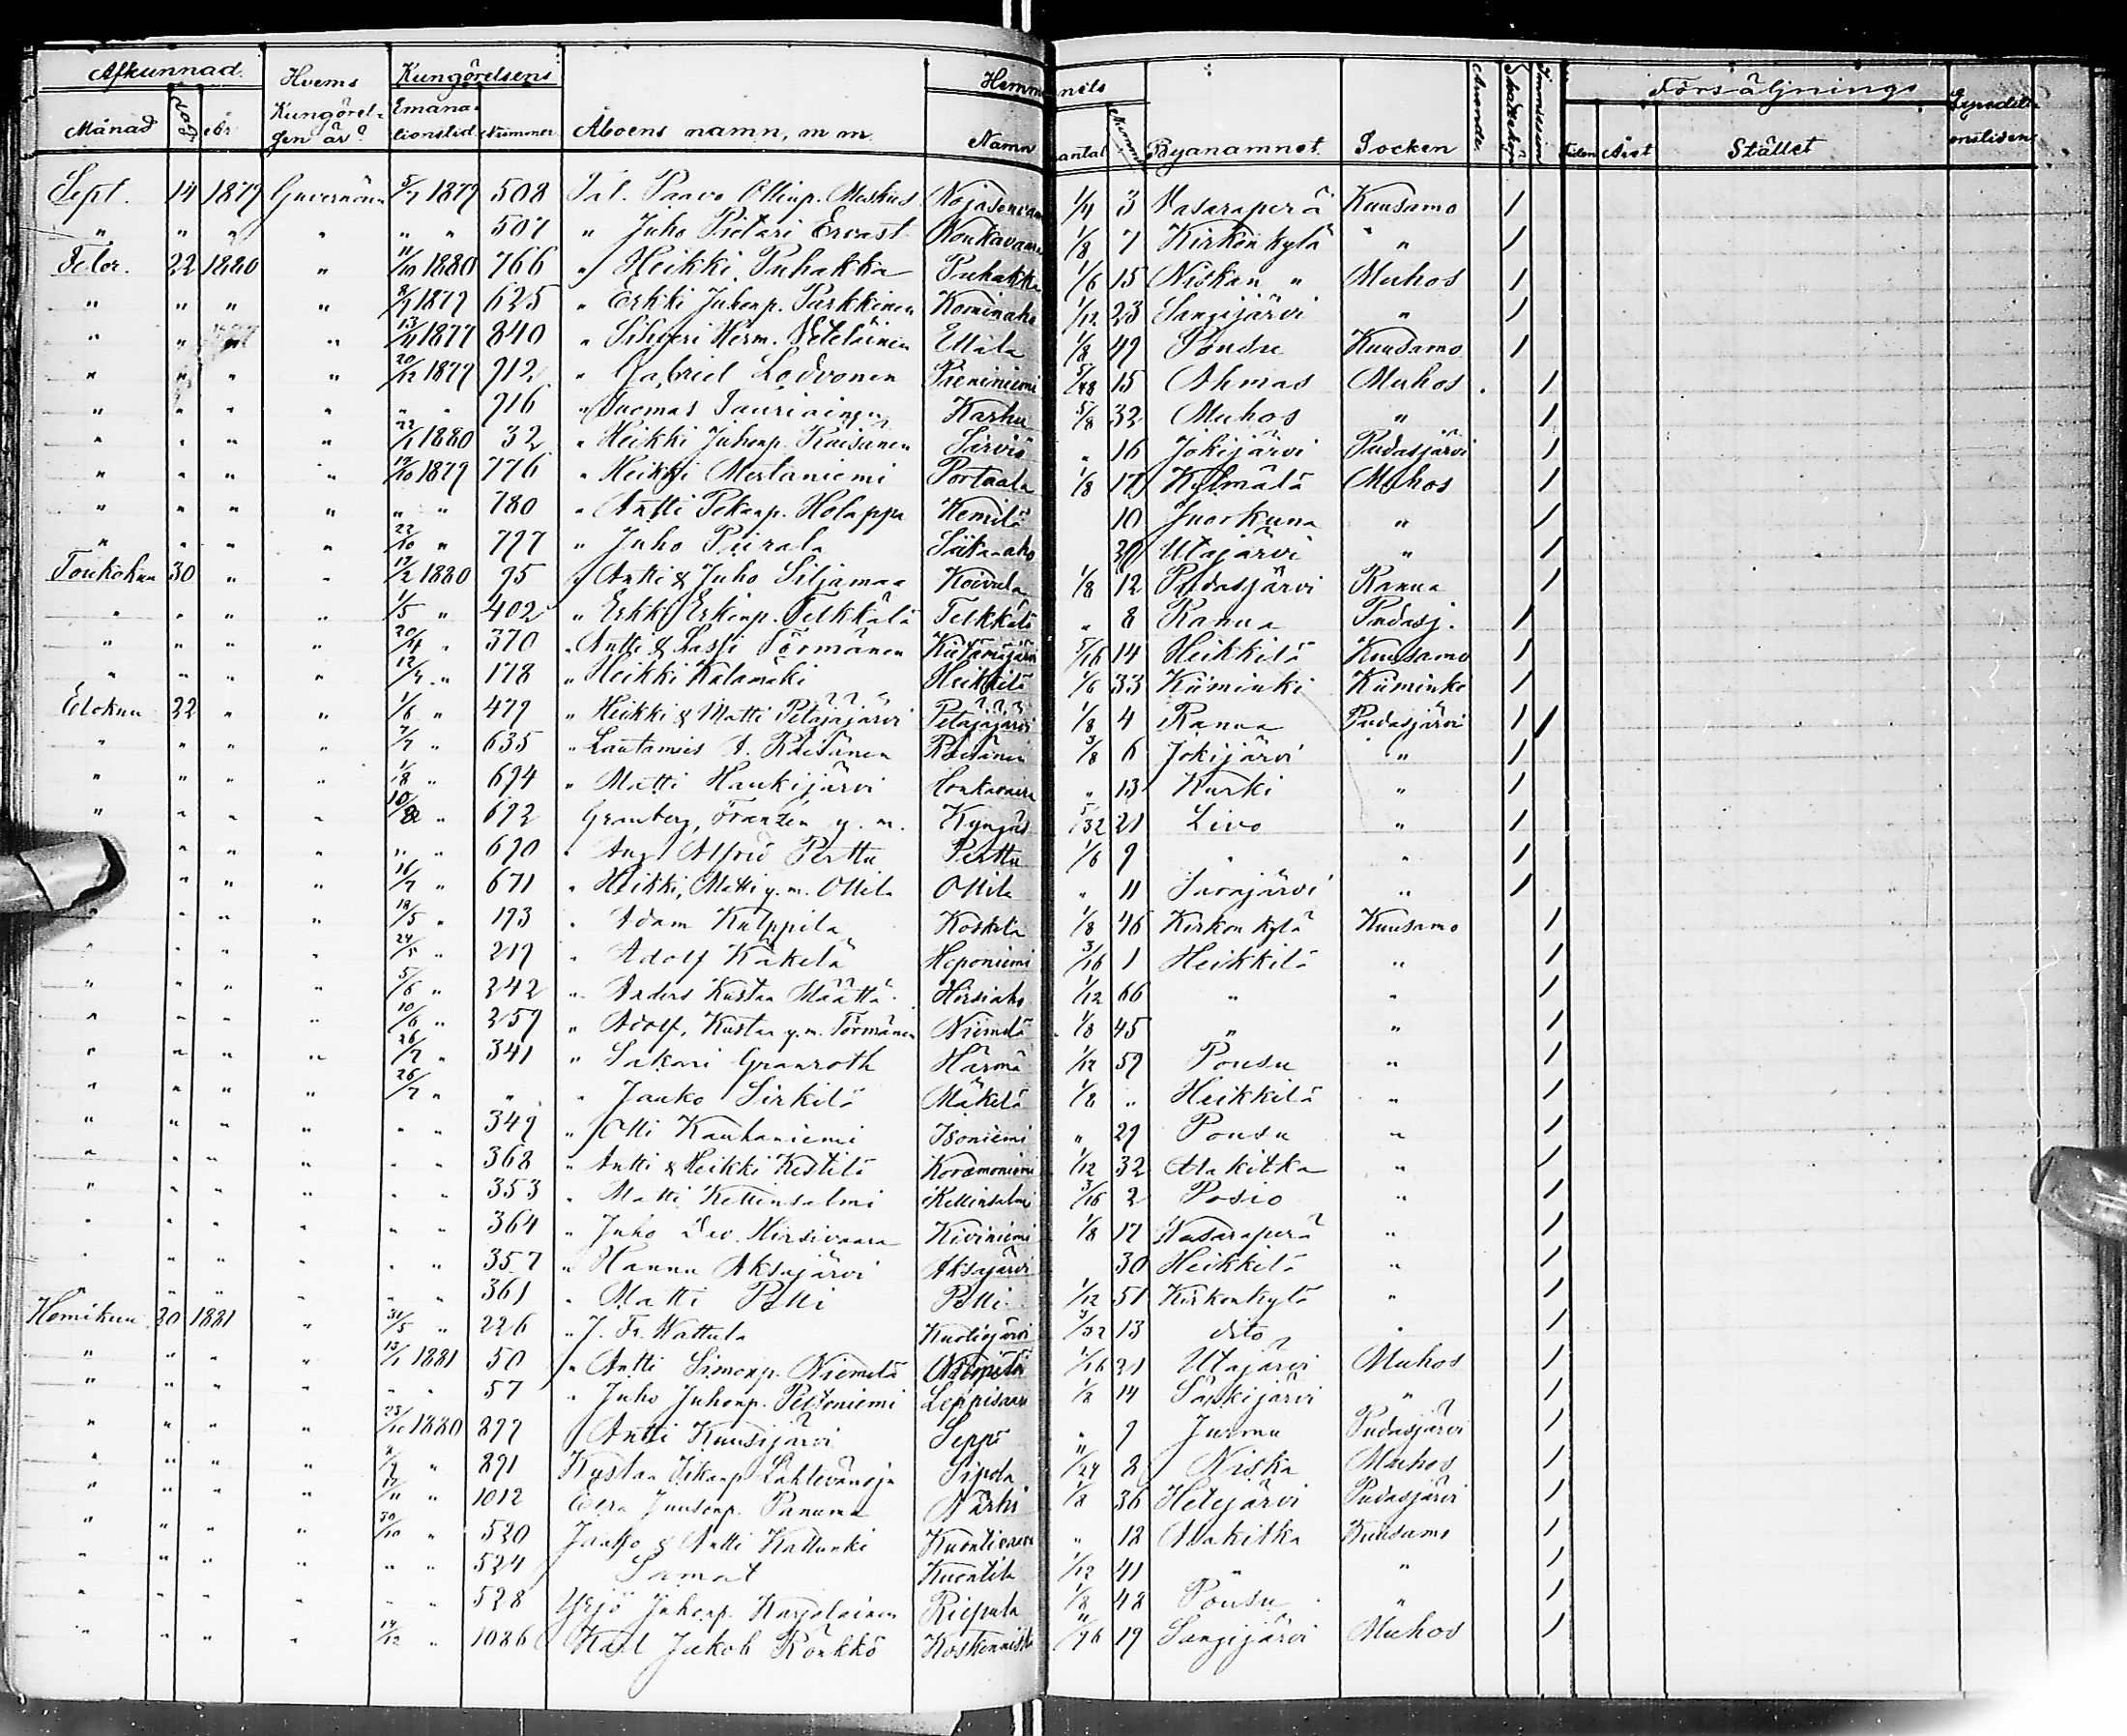 Afkunnad. Hvems Kungörelsens Hemmanets Försäljnings Expediti
Månad dag år Kungörel- Emana- Nummer Åboens namn, m m. Namn mantal Nummer Byanamnet. Socken Anande. Skatteköp Immission Tiden Året Stället onstiden
gen är? tionstid
Sept. 14 1879 Guvernörn 5/7 1879 508 Tal. Paavo Ollinp. Meskus Nojasenvaara 1/4 3 Vasaraperä Kuusamo /
" " " " " " 507 " Juho Pietari Ervast Koukavaara 1/8 7 Kirkon kylä " " /
Febr. 22 1880 " 11/10 1880 766 " Heikki Puhakka Puhakka 1/6 15 Niskan " Muhos /
" " " " 8/9 1879 625 " Erkki Juhonp. Parkkinen Kominaho 1/12 23 Sangijärvi " /
" " " " 13/11 1877 840 " Sihveri Herm. Väteläinen Ellilä 1/8 49 Pousu Kuusamo /
" " " " 20/12 1879 912 " Gabriel Lodvonen Pieniniemi 5/48 15 Ahmas Muhos . /
" " " " " " 916 " Tuomas Tauriainen Karhu 5/8 32 Muhos " /
" " " " 22/1 1880 32 " Heikki Juhonp. Räisänen Särvis " 16 Jokijärvi Pudasjärvi /
" " " " 17/10 1879 776 " Heikki Mertaniemi Portaala 1/8 17 Kylmälä Muhos /
" " " " " " 780 " Antti Pekanp. Holappa Kemilä 10 Juorkuna " /
" " " " 22/10 " 797 " Juho Piirala Siikaaho 39 Utajärvi " /
Toukokuu 30 " " 17/2 1880 95 " Antti & Juho Siljamaa Koivula 1/8 12 Pudasjärvi Ranua /
" " " " 1/5 " 402 " Erkki Erkinp. Telkkälä Telkkälä " 8 Ranua Pudasj. /
" " " " 20/4 " 370 " Antti & Lassi Törmänen Kiitämäjärvi 5/16 14 Heikkilä Kuusamo /
" " " " 12/4 " 178 " Heikki Kalamäki Heikkilä 1/6 33 Kiiminki Kiiminki /
Elokuu 22 " " 1/6 " 479 " Heikki & Matti Petäjäjärvi Petäjäjärvi 1/8 4 Ranua Pudasjärvi / /
" " " " 7/7 " 635 " Lautamies A. Räisänen Räisänen 3/8 6 Jokijärvi " /
" " " " 1/8 " 694 " Matti Haukijärvi Honkavaara " 13 Kurki " /
" " " " 10/8 " 692 Granberg, Franzén y. m. Kyngäs 5/32 21 Livo " /
" " " " " 690 " Aug. Alfred Perttu Perttu 1/6 9 " " /
" " " 16/7 " 671 " Heikki, Matti y. m. Ollila Ollila " 11 Sarajärvi " /
" " " " 18/5 " 193 " Adam Kulppila Koskela 1/8 46 Kirkon kylä Kuusamo /
" " " " 24/5 " 219 " Adolf Käkelä Heponiemi 3/16 1 Heikkilä " /
" " " " 5/6 " 242 " Anders Kustaa Määttä Hirsiaho 1/12 66 " " /
" " " " 10/6 " 259 " Adolf, Kustaa y. m. Törmänen Niemelä 1/8 45 " " /
" " " " 26/7 " 341 " Sakari Granroth Härmä 1/12 59 Pousu " /
" " " " 26/7 " " " Jaako Sirkilä Mäkelä 1/8 " Heikkilä " /
" " " " " " 349 " Olli Kauhaniemi Isoniemi " 29 Pousu " /
" " " " " " 368 " Antti & Heikki Kestilä Koramoniemi 1/12 32 Alakitka " /
" " " " " " 353 " Matti Kellinsalmi Kellinsalmi 3/16 2 Posio " /
" " " " " " 364 " Juho Dav. Hirsivaara Kiviniemi 1/8 17 Vasaraperä " /
" " " " " " 357 " Hannu Aksajärvi Aksajärvi 30 Heikkilä " /
" " " " " " 361 " Matti Polli Polli 1/12 51 Kirkonkylä " /
Heinäkuu 20 1881 " 31/5 " 226 " J. Fr. Wattula Kuolisjärvi 3/32 13 dito " /
" " " " 13/1 1881 50 " Antti Simonp. Niemelä 1/16 21 Utajärvi Muhos /
" " " " " " 57 " Juho Juhonp. Peltoniemi Leppisaari 1/8 14 Särkijärvi " /
" " " " 23/10 1880 899 Antti Kuusijärvi Seppä " 9 Jurmu Pudasjärvi /
" " " " " 891 Kustaa Sipola 11/24 2 Niska Muhos /
" " " " 17/11 " 1012 Eera Juusonp. Panuma Närhi 1/8 36 Hetejärvi Pudasjärvi /
" " " " 30/10 " 520 Jaakko & Antti Kallunki Kuontivaara " 18 Alakitka Kuusamo /
" " " " " " 524 Samat Kuontila 1/12 41 " " /
" " " " " " 528 Yrjö Juhonp. Karjalainen Riepula 1/8 48 Pousu " /
" " " " 14/12 " 1086 Karl Jakob Rönkkö Koskenniska 11/96 19 Sangijärvi Muhos /